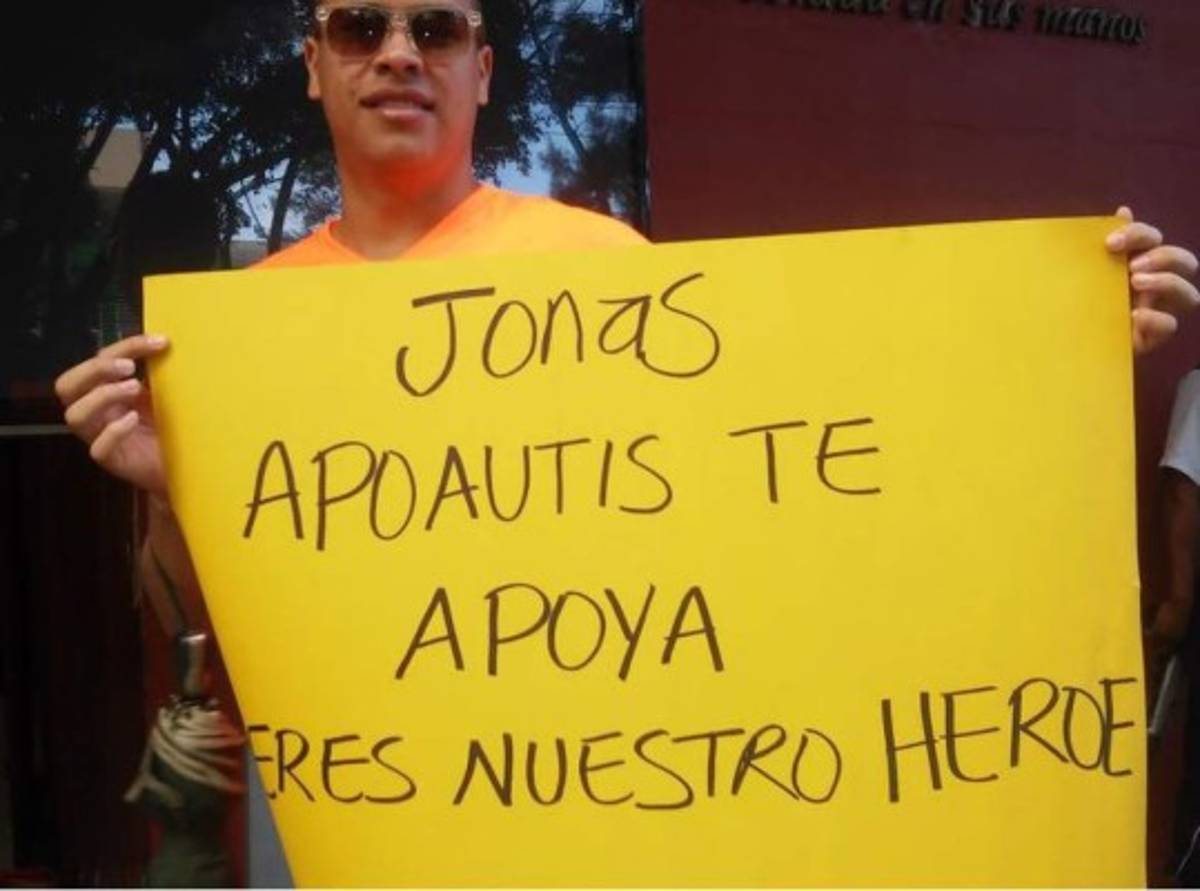 en sus manos
Jonas
APOAUTIS TE
APOYA
ERES NUESTRO HEROE